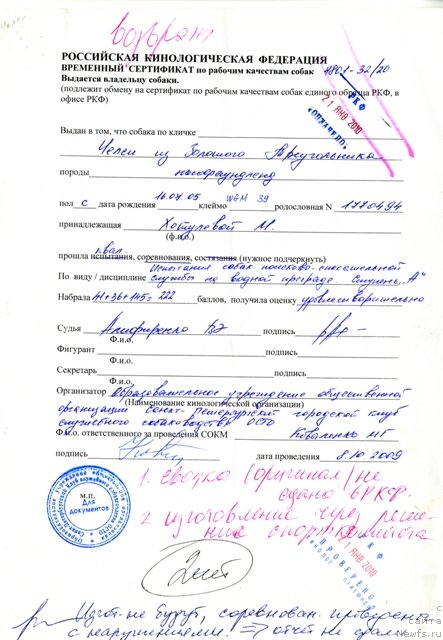 возврат
РОССИЙСКАЯ КИНОЛОГИЧЕСКАЯ ФЕДЕРАЦИЯ
ВРЕМЕННЫЙ СЕРТИФИКАТ по рабочим качествам собак 4801-32/20
Выдается владельцу собаки.
(подлежит обмену на сертификат по рабочим качествам собак единого образца РКФ, в
офисе РКФ)
РКФ
21 ЯНВ 2010
Выдан в том, что собака по кличке
Челси из Золотого Треугольника
породы ньюфаундленд
пол с дата рождения 16.07.05 клеймо WGM 39 родословная N 1770494
принадлежащая Хотулевой М.
(ф.и.о.)
I квал.
прошла испытания, соревнования, состязания (нужное подчеркнуть)
Испытания собак поисково-спасательной
По виду / дисциплине службы на водной преграде. Ступень „А"
Набрала 41+36+145=222 баллов, получила оценку удовлетворительно
Судья подпись
Ф.и.о.
Фигурант подпись
Ф.и.о.
Секретарь подпись
Ф.И.о.
Организатор Образовательное учреждение общественной
(Наименование кинологической организации)
организации Санкт-Петербургский городской клуб
служебного собаководства ОСТО
Ф.и.о. ответственного за проведения СОКМ Коваленко МГ
подпись дата проведения 8.10.2009
М.П.
Для документов
1. Сводка (оригинал) не
сдана в РКФ.
2. изготовление через реше-
ние спорткомитета
РКФ
ПРОВЕРЕНО
21 ЯНВ 2010
Изгот-не будут, соревнован. проведено
с нарушениями. => отчёт не сдали
с
сайта
Newfs.ru